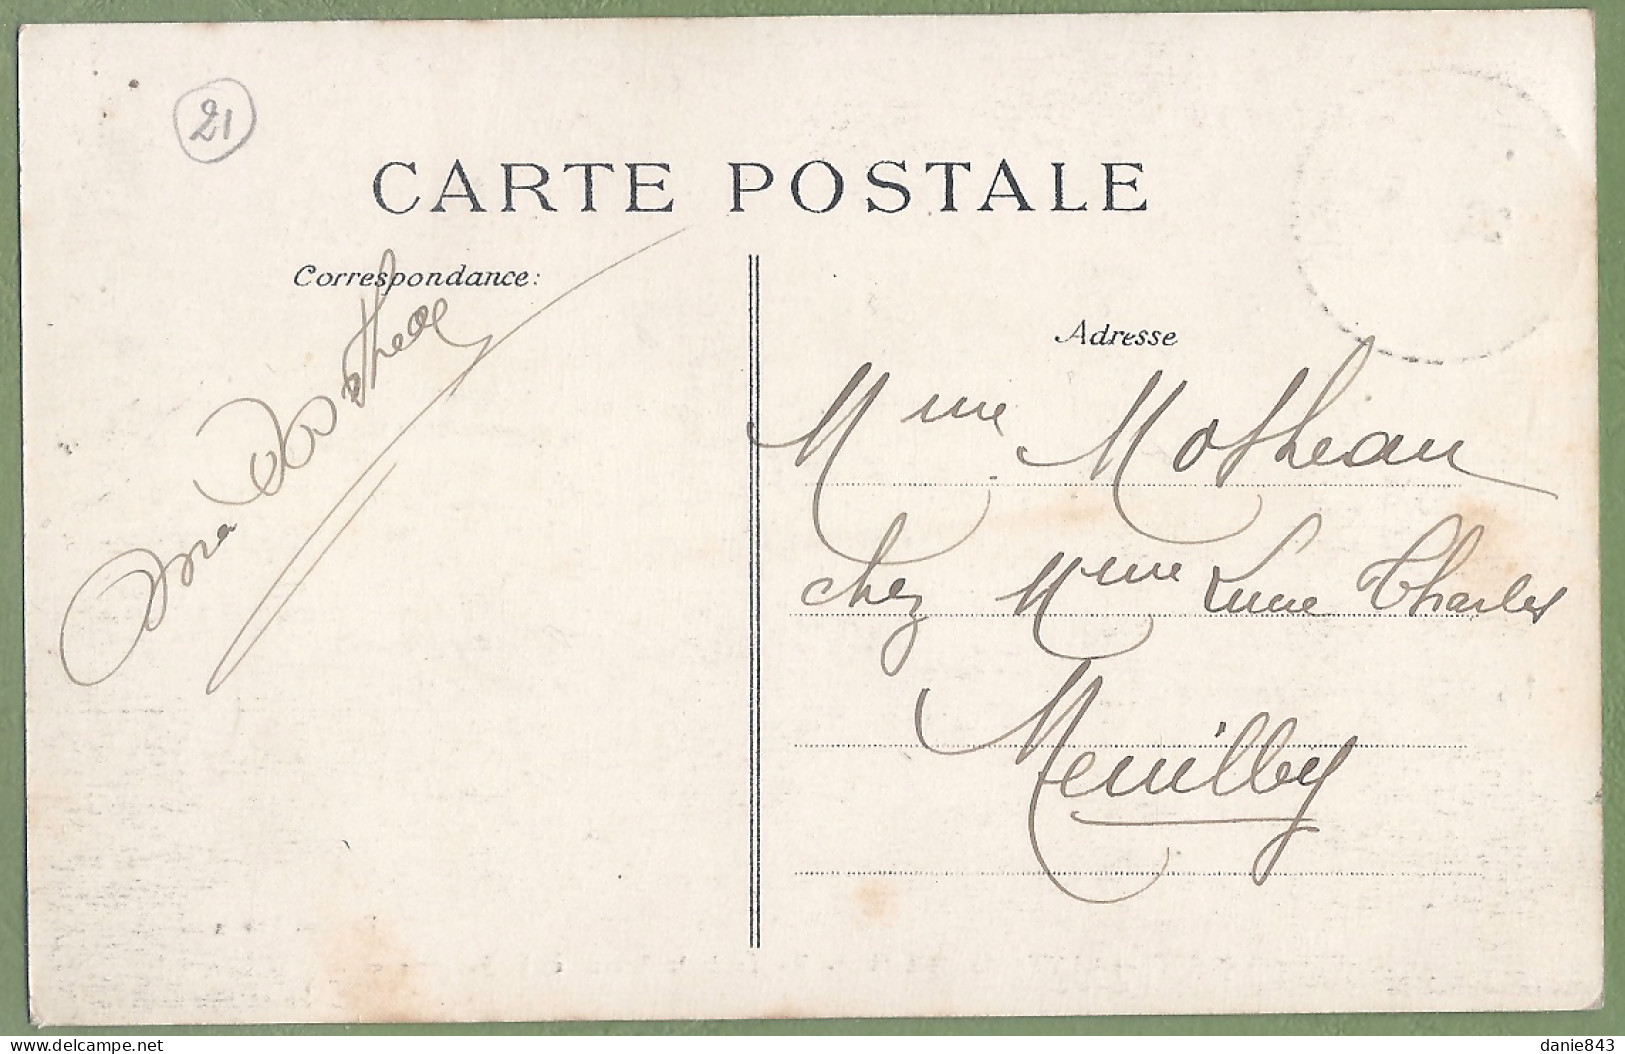 21
CARTE POSTALE
Correspondance:
Adresse
Mme Motheau
chez Mme Lucie Charles
Meuilley
delcampe.net
danie843